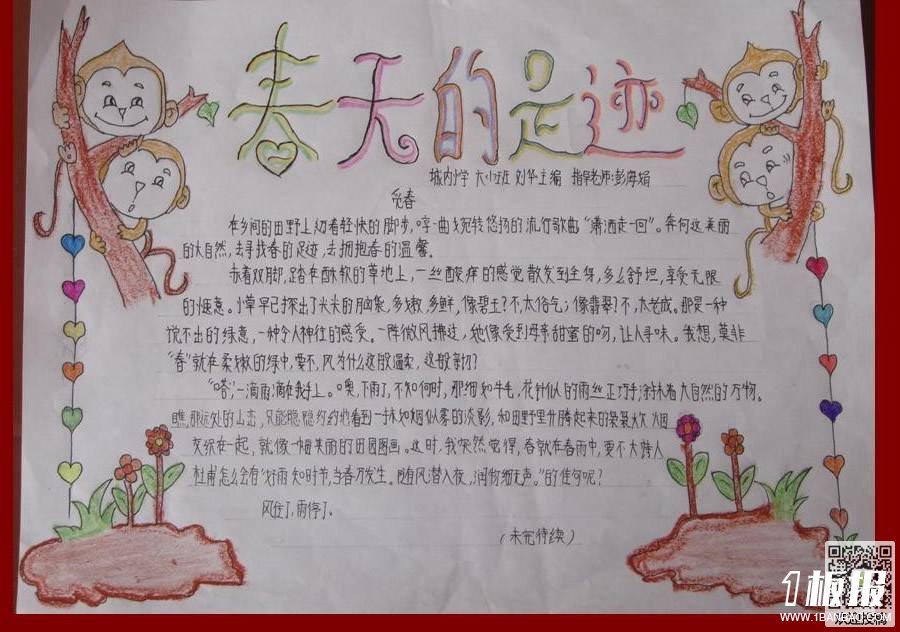 春天的足迹
城内小学 六(2)班 刘华主编 指导老师:彭海娟
觅春
在乡间的田野上切着轻快的脚步,哼一曲宛转悠扬的流行歌曲“潇洒走一回”。奔向这美丽
的大自然,去寻找春的足迹,去拥抱春的温馨。
赤着双脚,踏在酥软的草地上,一丝酸痒的感觉散发到全身,多么舒坦,享受无限
的惬意。小草早已探出了尖尖的脑袋,多嫩,多鲜,像碧玉?不,太俗气;像翡翠?不,太老成。那是一种
说不出的绿意,一种令人神往的感受。一阵微风拂过,她像受到母亲甜蜜的吻,让人寻味。我想,莫非
“春”就在柔嫩的绿中,要不,风为什么这般温柔,这般亲切?
“嗒”,一滴雨滴在我手上。噢,下雨了,不知何时,那细如牛毛,花针似的雨丝正巧手涂抹着大自然的万物。
瞧,那远处的山峦,只能隐隐约约地看到一抹如烟似雾的淡影,和田野里升腾起来的袅袅炊烟
交织在一起,就像一幅美丽的田园图画。这时,我突然觉得,春就在春雨中,要不大诗人
杜甫怎么会有“好雨知时节,当春乃发生。随风潜入夜,润物细无声。”的佳句呢?
风住了,雨停了。
(未完待续)
1板报
WWW.1BANBAO.COM
欢迎投稿